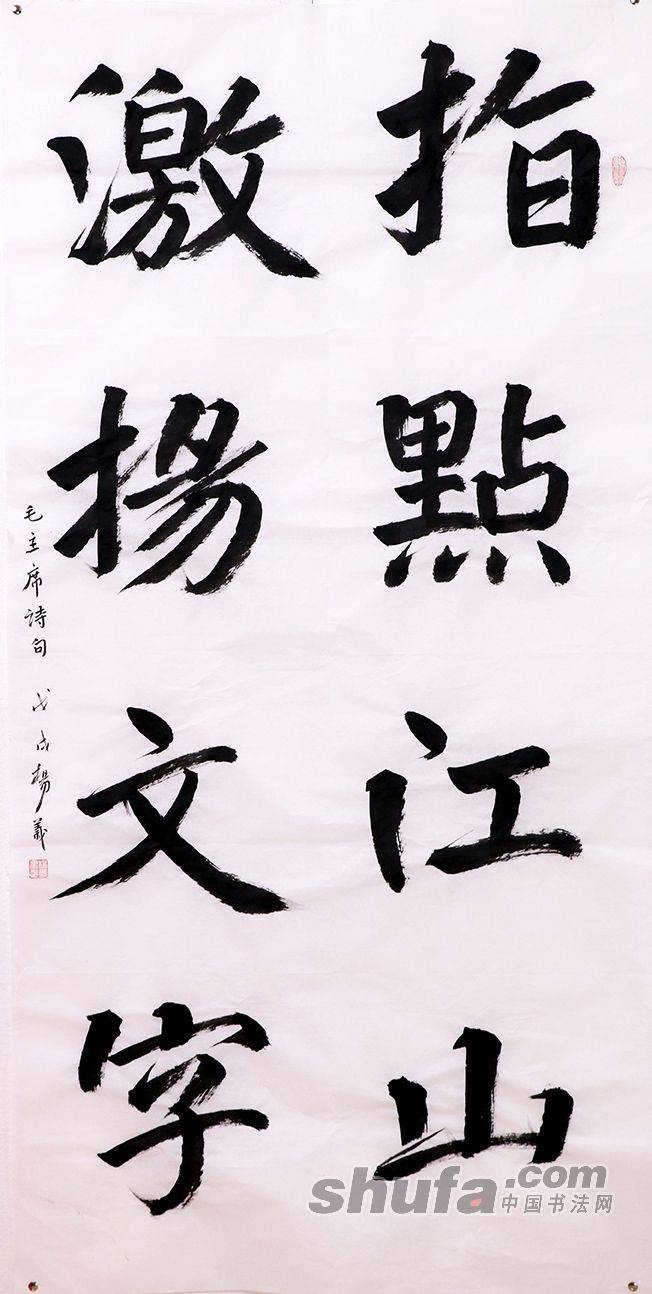 指點江山
激揚文字
毛主席诗句 戊戌楊義
shufa.com
中国书法网